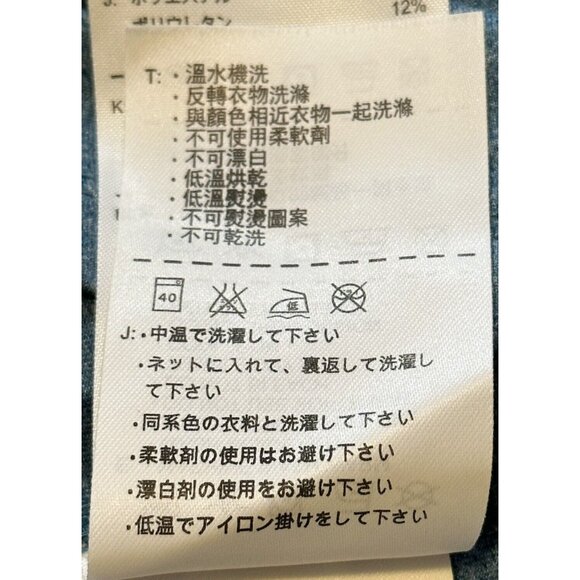 J: ポリエステル
12%
ポリウレタン
K
T: ・溫水機洗
・反轉衣物洗滌
・與顏色相近衣物一起洗滌
・不可使用柔軟劑
・不可漂白
・低溫烘乾
・低溫熨燙
・不可熨燙圖案
・不可乾洗
40 低
J: ・中温で洗濯して下さい
・ネットに入れて、裏返して洗濯し
て下さい
・同系色の衣料と洗濯して下さい
・柔軟剤の使用はお避け下さい
・漂白剤の使用をお避け下さい
・低温でアイロン掛けをして下さい